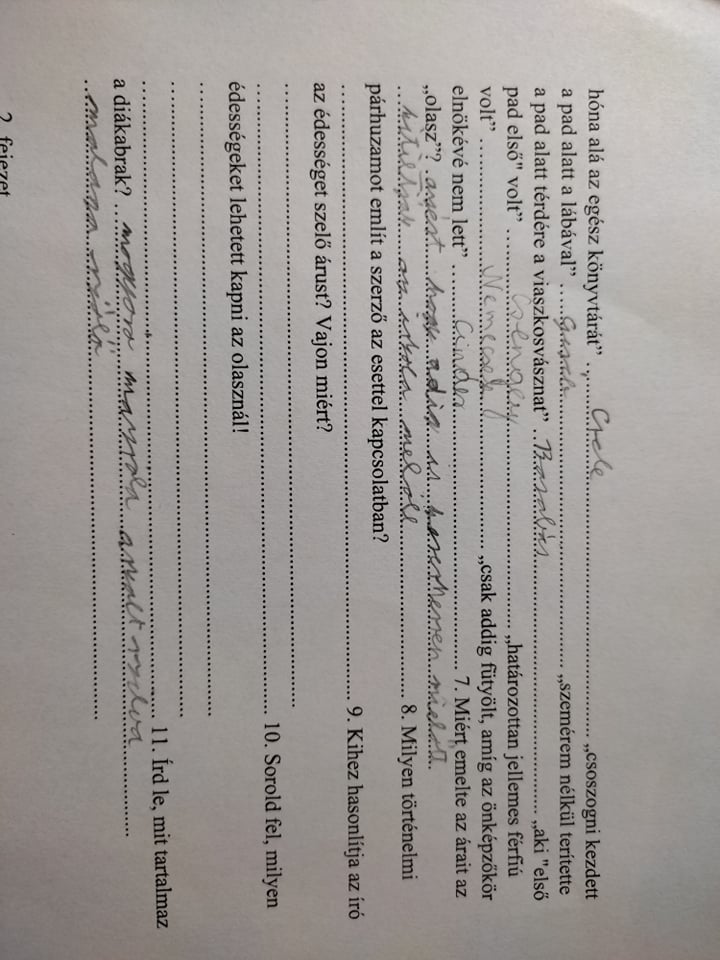 hóna alá az egész könyvtárát” ........ Csele ........ „csoszogni kezdett
a pad alatt a lábával” ........ „szemérem nélkül terítette
a pad alatt térdére a viaszkosvásznat” ........ Barabás ........ „aki "első
pad első" volt” ........ Csengey ........ „határozottan jellemes férfiú
volt” ........ Nemecsek ........ „csak addig fütyölt, amíg az önképzőkör
elnökévé nem lett” ........ 7. Miért emelte az árait az
„olasz”? azért hogy addig is
kitiltják az ........ 8. Milyen történelmi
párhuzamot említ a szerző az esettel kapcsolatban?
........ 9. Kihez hasonlítja az író
az édességet szelő árust? Vajon miért?
........ 10. Sorold fel, milyen
édességeket lehetett kapni az olasznál!
........ 11. Írd le, mit tartalmaz
a diákabrak? mogyoró
2. fejezet